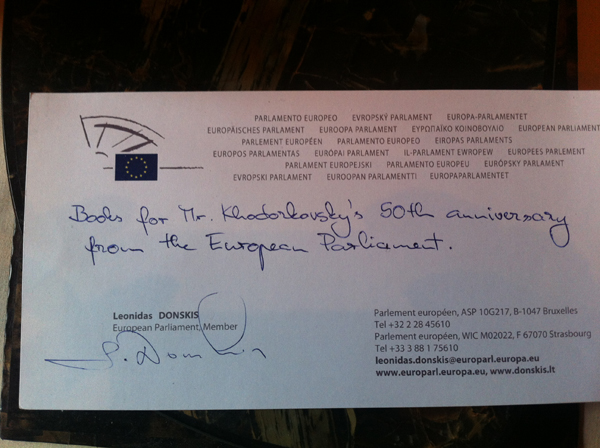 PARLAMENTO EUROPEO EVROPSKÝ PARLAMENT EUROPA-PARLAMENTET
EUROPÄISCHES PARLAMENT EUROOPA PARLAMENT ΕΥΡΩΠΑΪΚΟ ΚΟΙΝΟΒΟΥΛΙΟ EUROPEAN PARLIAMENT
PARLEMENT EUROPÉEN PARLAMENTO EUROPEO EIROPAS PARLAMENTS
EUROPOS PARLAMENTAS EURÓPAI PARLAMENT IL-PARLAMENT EWROPEW EUROPEES PARLEMENT
PARLAMENT EUROPEJSKI PARLAMENTO EUROPEU EURÓPSKY PARLAMENT
EVROPSKI PARLAMENT EUROOPAN PARLAMENTTI EUROPAPARLAMENTET
Books for Mr. Khodorkovsky's 50th anniversary
from the European Parliament.
Leonidas DONSKIS
European Parliament, Member
Parlement européen, ASP 10G217, B-1047 Bruxelles
Tel +32 2 28 45610
Parlement européen, WIC M02022, F 67070 Strasbourg
Tel +33 3 88 1 75610
leonidas.donskis@europarl.europa.eu
www.europarl.europa.eu, www.donskis.lt